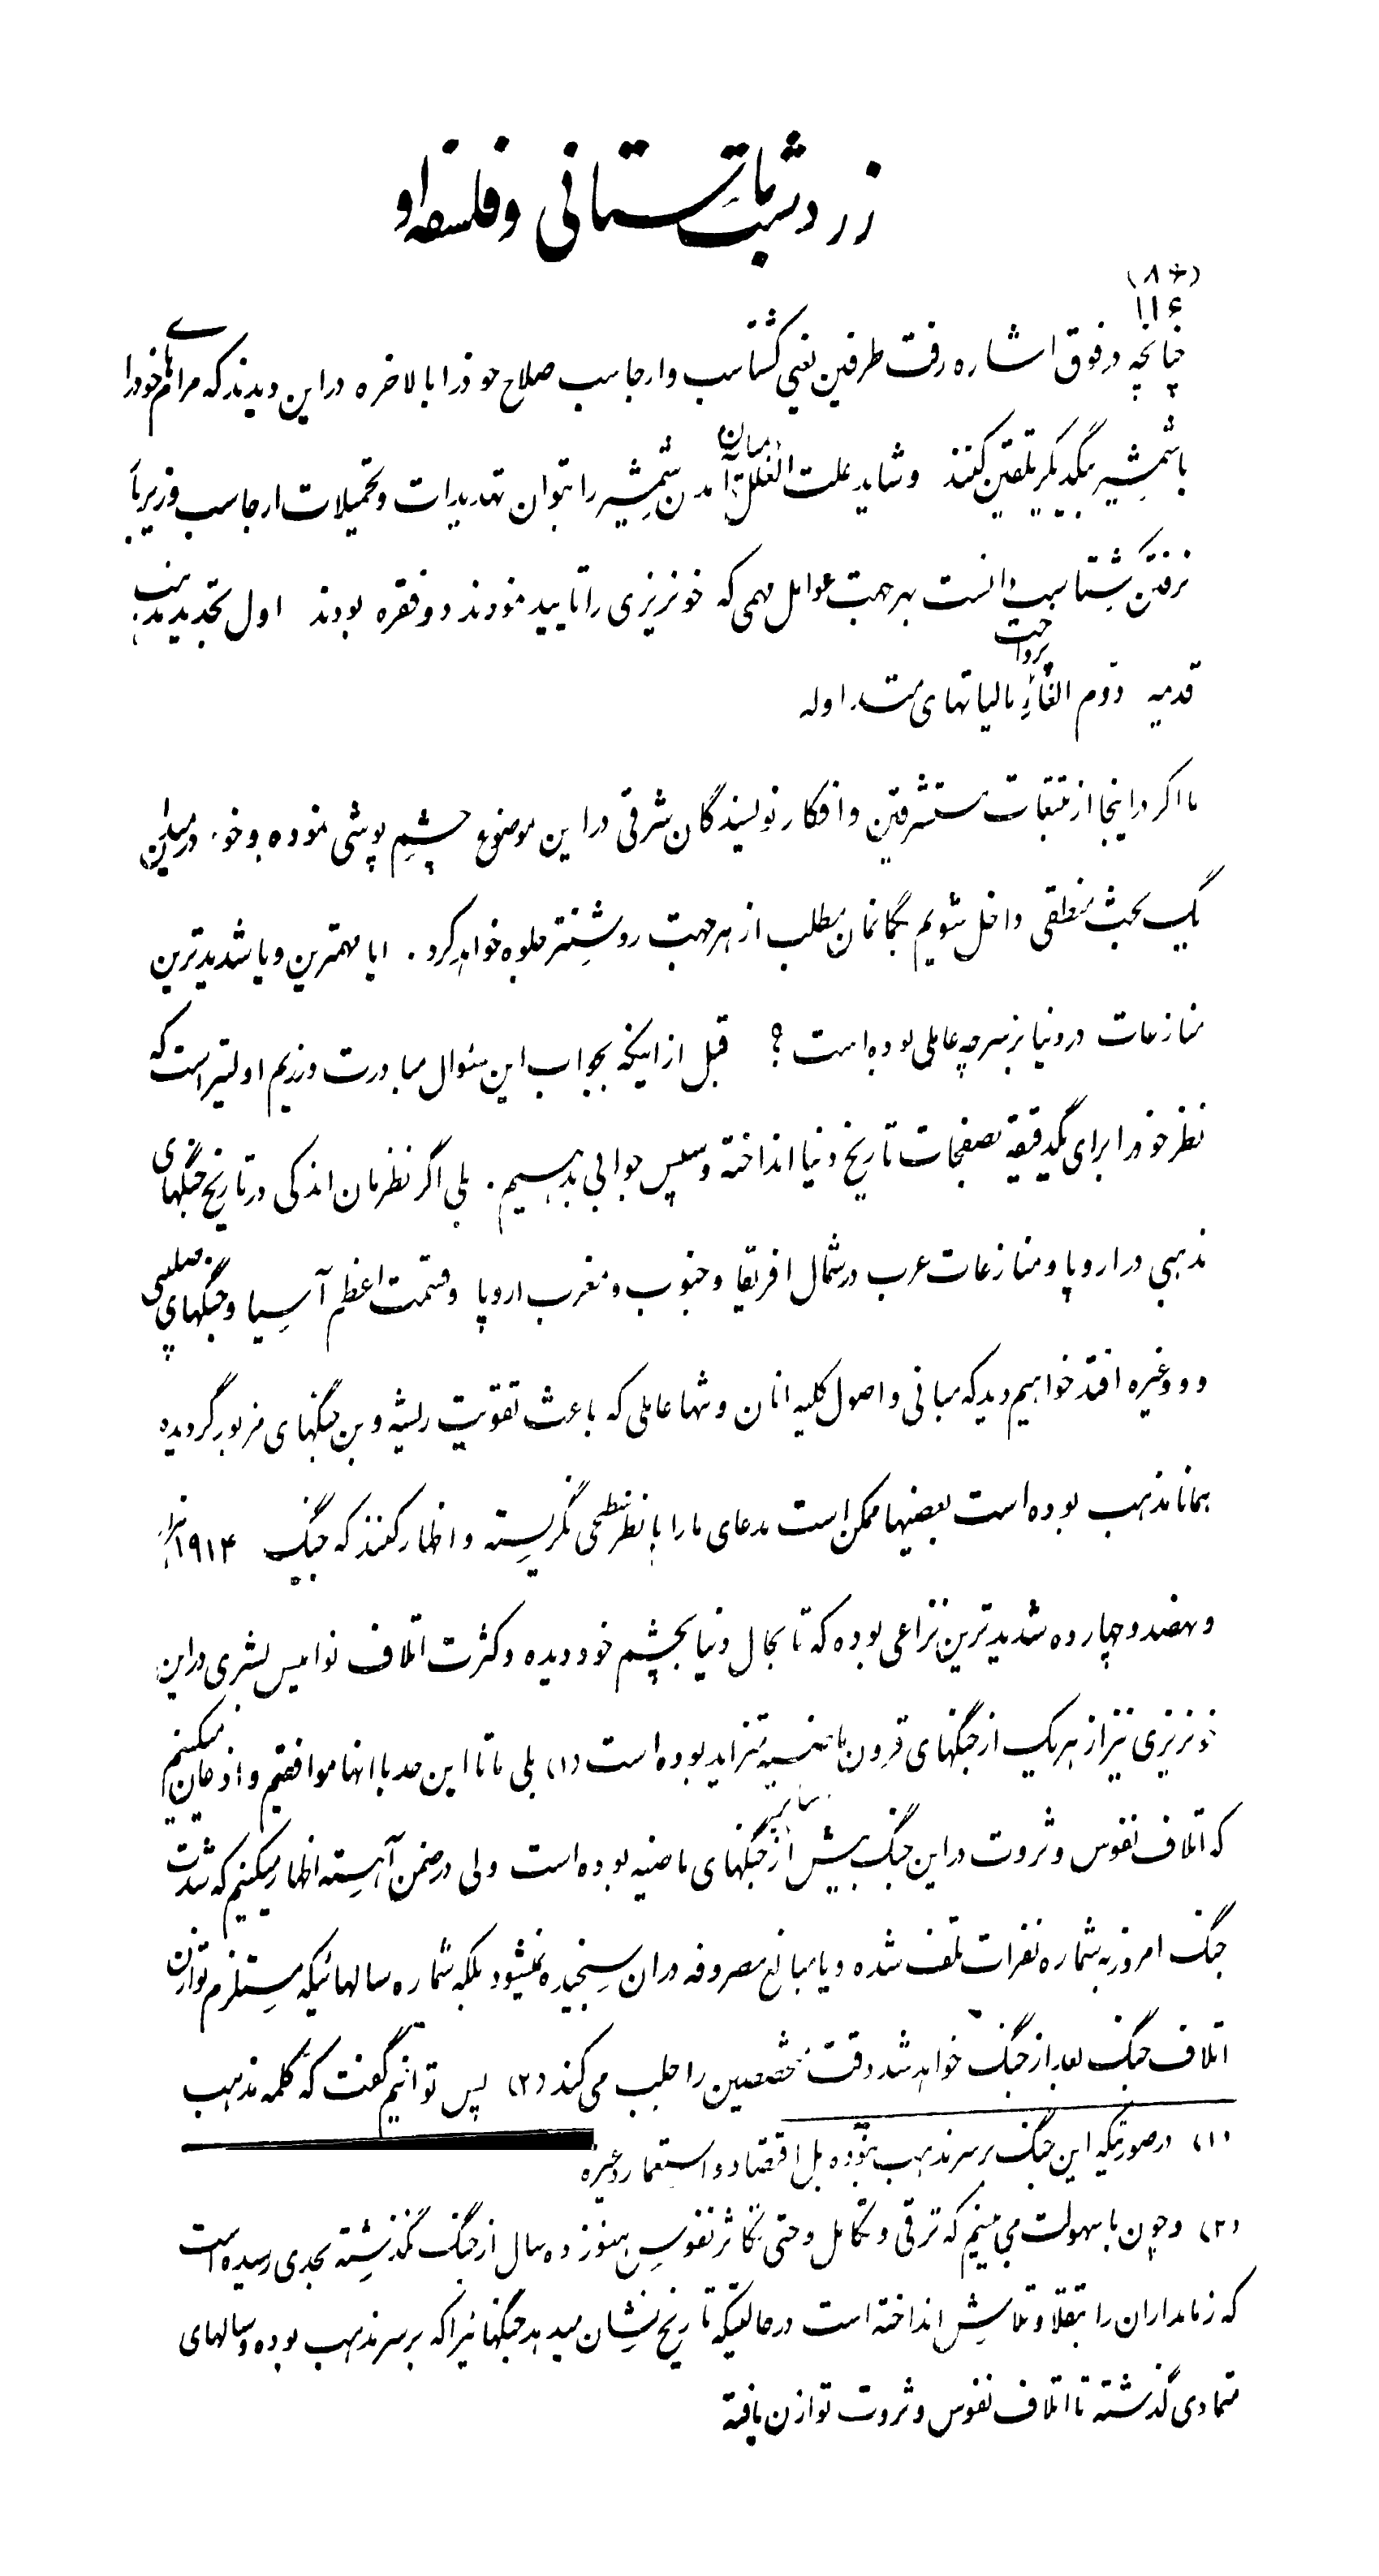 زردشت باستانی و فلسفه او
(۸۶)
۱۱۶
چنانچه در فوق اشاره رفت طرفین یعنی گشتاسب و ارجاسب صلاح خود را بالاخره در این دیدند که مرام‌های خود را
با شمشیر بیکدیگر تلقین کنند و شاید علت العلل بمیان آمدن شمشیر را بتوان تهدیدات و تحمیلات ارجاسب و زیر بار
نرفتن گشتاسب دانست بهر جهت عوامل مهمی که خونریزی را تایید نمودند دو فقره بودند اول تجدید مذهب
قدمیه دوم الغاء پرداخت مالیاتهای متداوله
ما اگر در اینجا از تتبعات مستشرقین و افکار نویسندگان شرقی در این موضوع چشم پوشی نموده و خود در میدان
یک بحث منطقی داخل شویم بگمانمان مطلب از هر جهت روشنتر جلوه خواهد کرد. ایا مهمترین و یا شدیدترین
منازعات در دنیا بر سر چه عاملی بوده است ؟ قبل از اینکه بجواب این سئوال مبادرت ورزیم اولیتر است که
نظر خود را برای یکدقیقه بصفحات تاریخ دنیا انداخته و سپس جوابی بدهیم. بلی اگر نظرمان اندکی در تاریخ جنگهای
مذهبی در اروپا و منازعات عرب در شمال افریقا و جنوب و مغرب اروپا و قسمت اعظم آسیا و جنگهای صلیبی
و و و غیره افتد خواهیم دید که مبانی و اصول کلیه انان و تنها عاملی که باعث تقویت ریشه و بن جنگهای مزبور گردیده
همانا مذهب بوده است بعضیها ممکن است مدعای ما را با نظر سطحی نگریسته و اظهار کنند که جنگ ۱۹۱۴ هزار
و نهصد و چهارده شدیدترین نزاعی بوده که تا بحال دنیا بچشم خود دیده و کثرت اتلاف نوامیس بشری در این
خونریزی نیز از هر یک از جنگهای قرون ماضیه متزاید بوده است (۱) بلی ما تا این حد با انها موافقیم و اذعان میکنیم
که اتلاف نفوس و ثروت در این جنگ بیش از سایر جنگهای ماضیه بوده است ولی در ضمن آهسته اظهار میکنیم که شدت
جنگ امروز به شماره نفرات تلف شده و یا مبالغ مصروفه در ان سنجیده نمیشود بلکه شماره سالهائیکه مستلزم توازن
اتلاف جنگ بعد از جنگ خواهد شد دقت متخصصین را جلب می کند (۲) پس توانیم گفت که کلمه مذهب
(۱) در صورتیکه این جنگ بر سر مذهب نبوده بل اقتصاد و استعمار و غیره
(۲) و چون با سهولت می بینیم که ترقی و تکامل و حتی تکاثر نفوس هنوز ده سال از جنگ نگذشته بحدی رسیده است
که زمامداران را بتقلا و تلاش انداخته است در حالتیکه تاریخ نشان میدهد جنگهائیرا که بر سر مذهب بوده و سالهای
متمادی گذشته تا اتلاف نفوس و ثروت توازن یافته